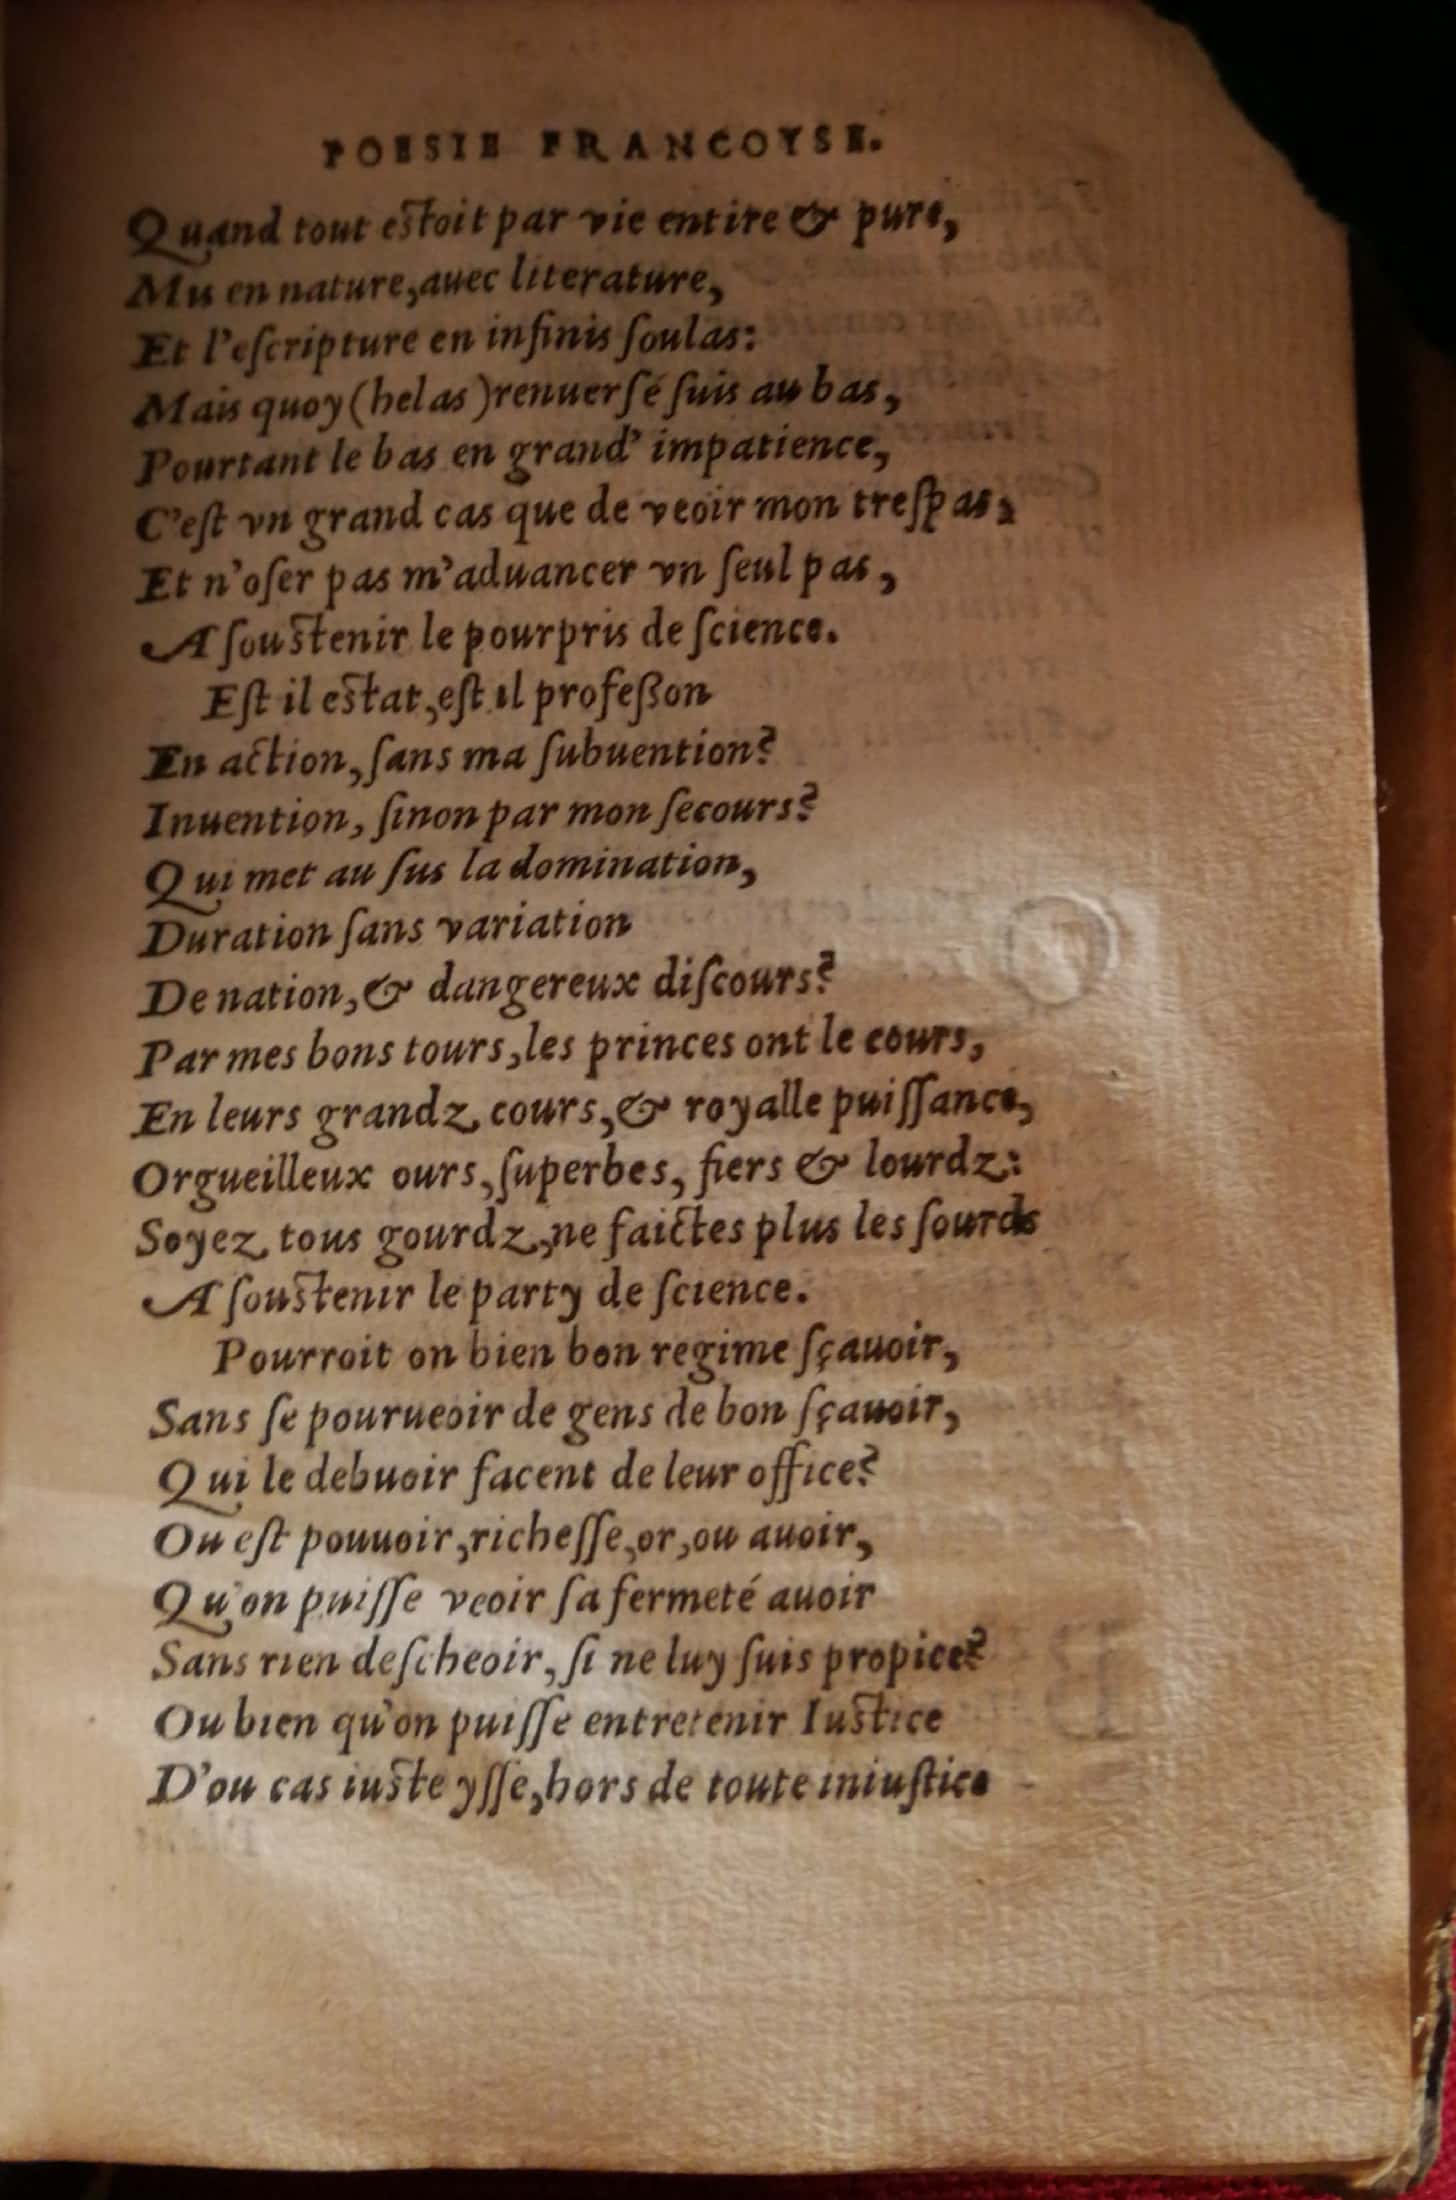 POESIE FRANCOYSE.
Quand tout estoit par vie entire & pure,
Mu en nature, auec literature,
Et l'eſcripture en infinis ſoulas:
Mais quoy (helas) renuerſé ſuis au bas,
Pourtant le bas en grand' impatience,
C'eſt vn grand cas que de veoir mon treſpas,
Et n'oſer pas m'aduancer vn ſeul pas,
A ſouſtenir le pourpris de ſcience.
Eſt il eſtat, eſt il profeßon
En action, ſans ma ſubuention?
Inuention, ſinon par mon ſecours?
Qui met au ſus la domination,
Duration ſans variation
De nation, & dangereux diſcours?
Par mes bons tours, les princes ont le cours,
En leurs grandz cours, & royalle puiſſance,
Orgueilleux ours, ſuperbes, fiers & lourdz:
Soyez tous gourdz, ne faictes plus les ſourds
A ſouſtenir le party de ſcience.
Pourroit on bien bon regime ſçauoir,
Sans ſe pourueoir de gens de bon ſçauoir,
Qui le debuoir facent de leur office?
Ou eſt pouuoir, richeſſe, or, ou auoir,
Qu'on puiſſe veoir ſa fermeté auoir
Sans rien deſcheoir, ſi ne luy ſuis propice?
Ou bien qu'on puiſſe entretenir Iuſtice
D'ou cas iuſte yſſe, hors de toute iniuſtice